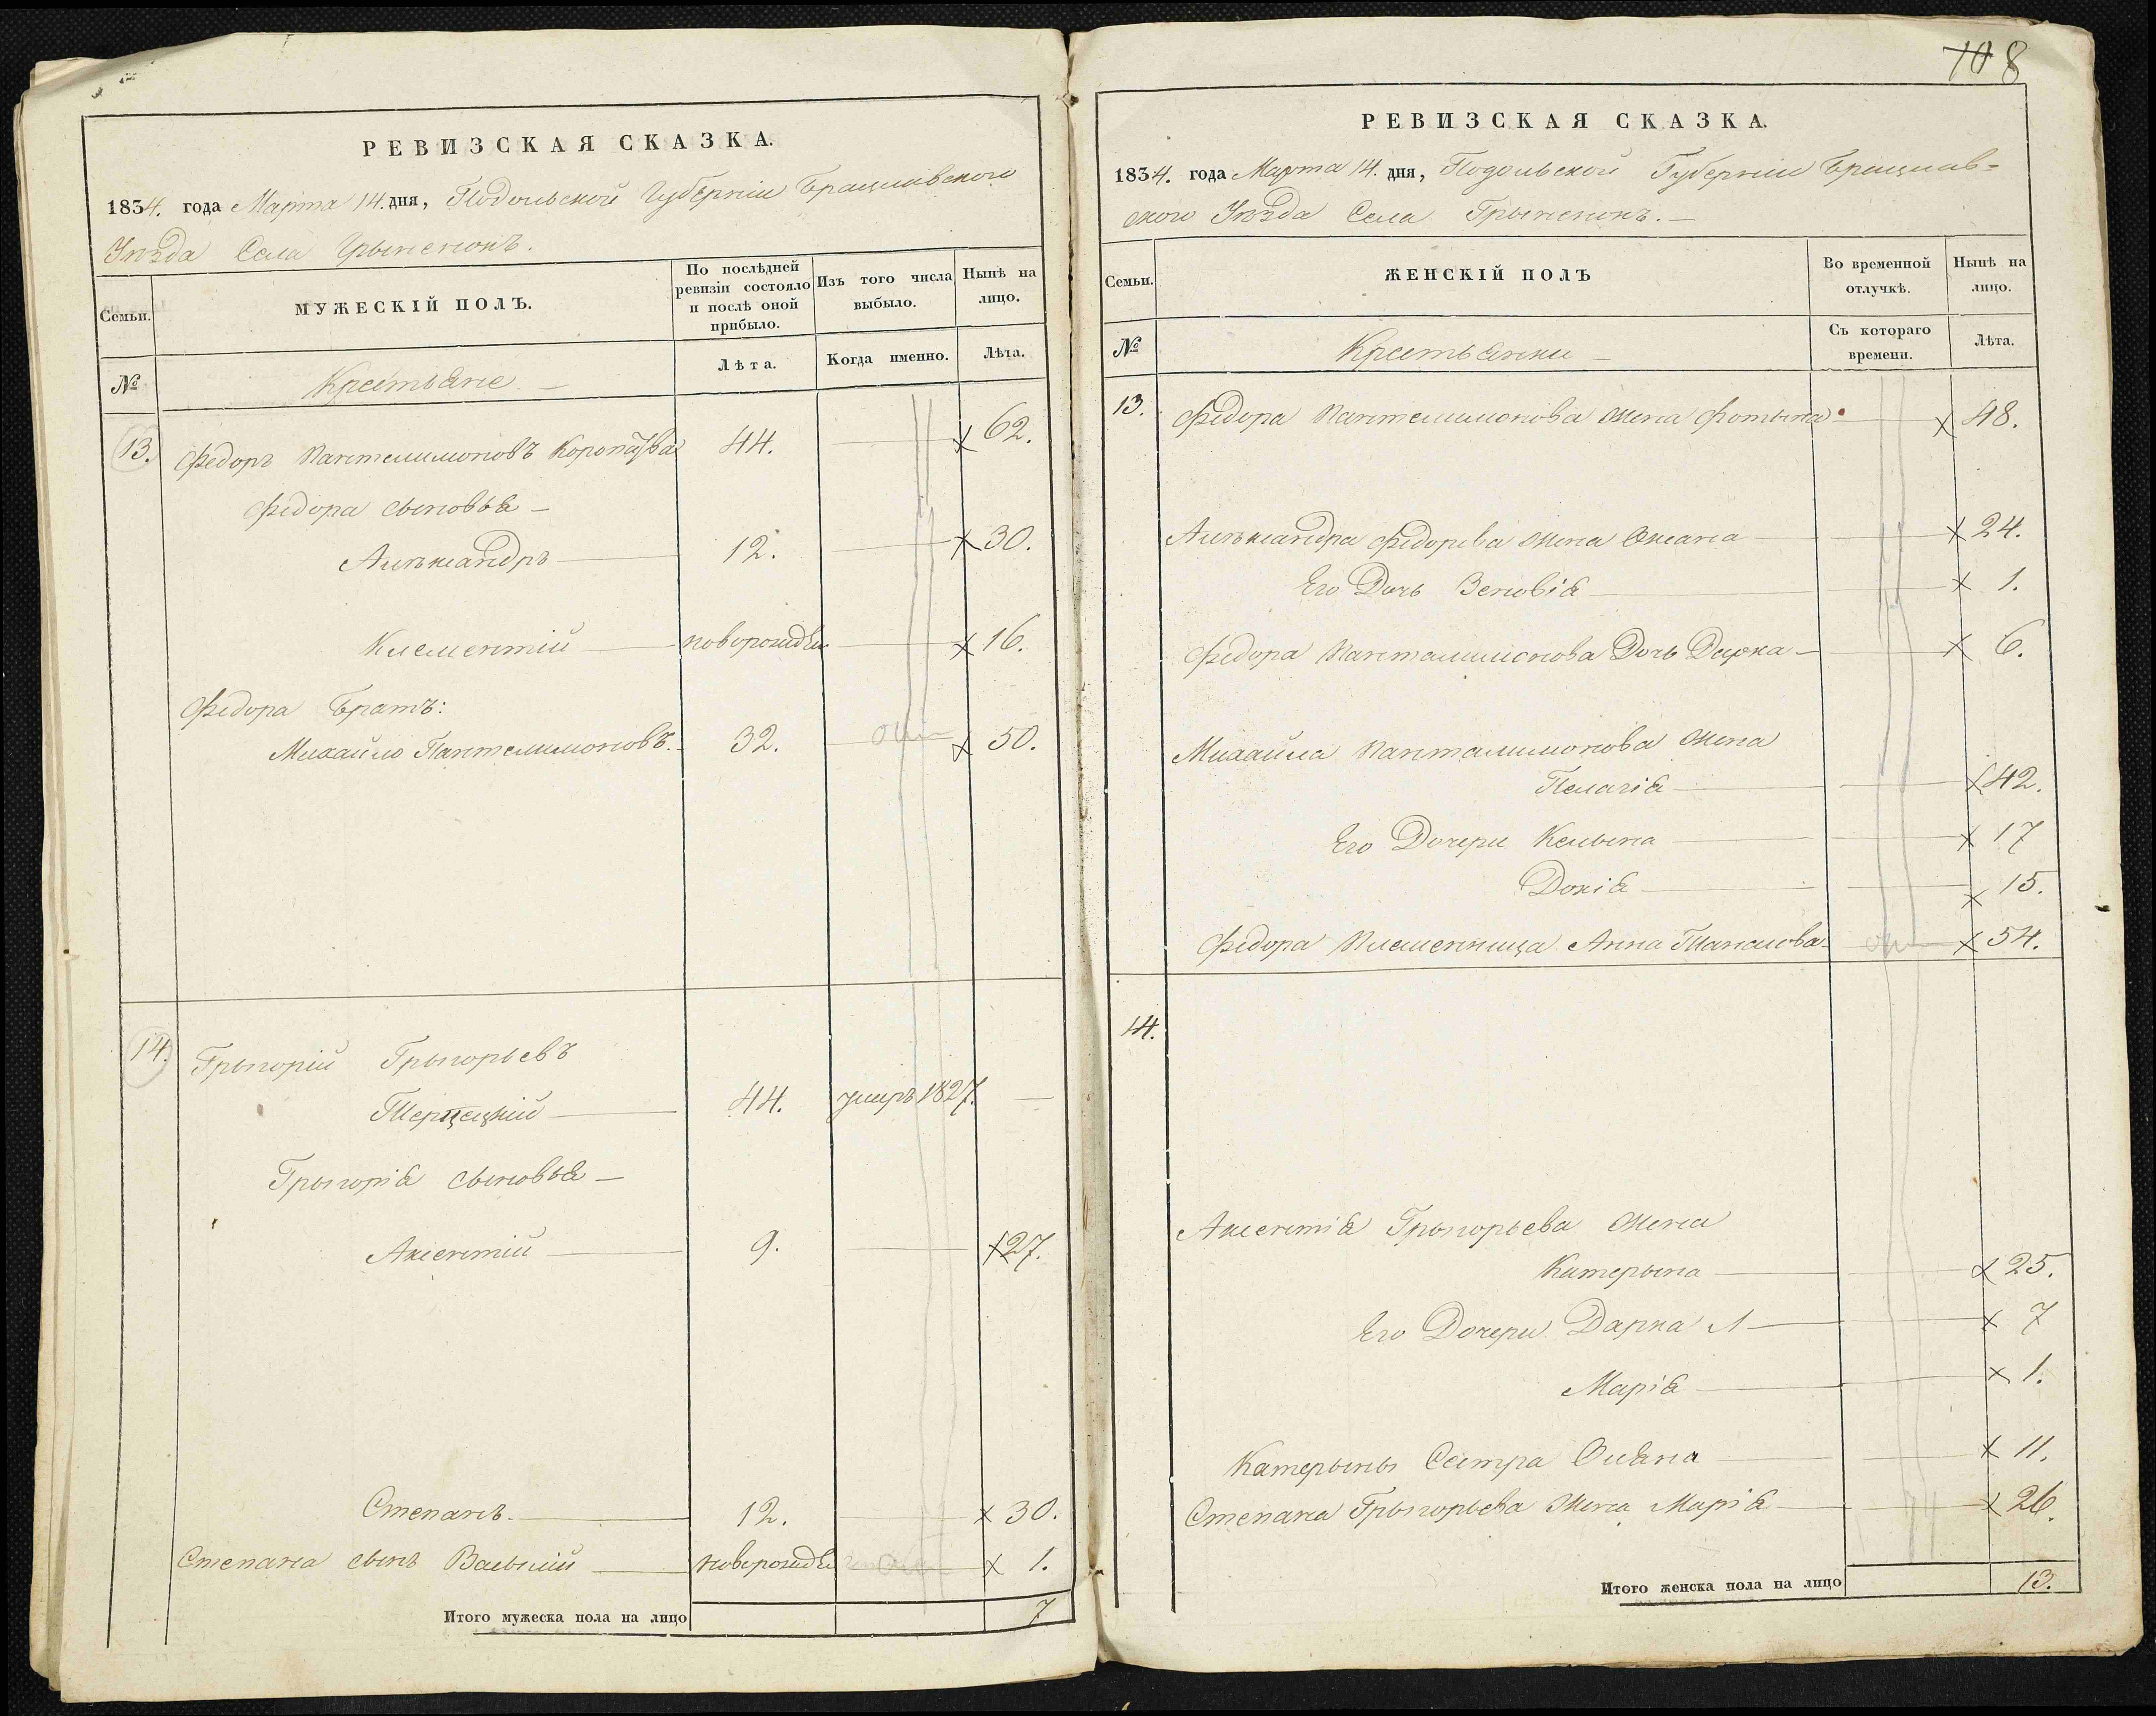 108
РЕВИЗСКАЯ СКАЗКА.
1834. года Марта 14. дня, Подольской Губерніи Брацлавского
Уѣзда Села Грыненокъ.
Семьи.
МУЖЕСКІЙ ПОЛЪ.
По послѣдней ревизіи состояло и послѣ оной прибыло.
Изъ того числа выбыло.
Нынѣ на лицо.
№
Крестьяне.
Лѣта.
Когда именно.
Лѣта.
13. Федоръ Пантелимоновъ 44. 62.
Федора сыновья
Алѣксандръ 12. 30.
Клементій новорожден 16.
Федора Братъ:
Михайло Пантелимоновъ. 32. 50.
14. Грыгорій Грыгорьевъ
44. умръ 1827.
Грыгорія сыновья
Аксентій 9. 27.
Степанъ. 12. 30.
Степана сынъ Васылій новорожден 1.
Итого мужеска пола на лицо 7
РЕВИЗСКАЯ СКАЗКА.
1834. года Марта 14. дня, Подольской Губерніи Брацлав-
ского Уѣзда Села Грыненокъ.
Семьи.
ЖЕНСКІЙ ПОЛЪ
Во временной отлучкѣ.
Нынѣ на лицо.
№
Крестьянки
Съ котораго времени.
Лѣта.
13. Федора Пантелимонова жена Фотына 48.
Алѣксандра Федорева жена Оксана 24.
Его Дочь Зеновія 1.
Федора Панталимонова Дочь Дарка 6.
Михайла Панталимонова жена
Пелагія 42.
Его Дочери Келына 17
Докія 15.
Федора Племенница Анна 54.
14.
Аксентія Грыгорьева жена
Катерына 25.
Его Дочери. Дарка 7
Марія 1.
Катерыны Сестра Оляна 11.
Степана Грыгорьева жена Марія 26.
Итого женска пола на лицо 13.